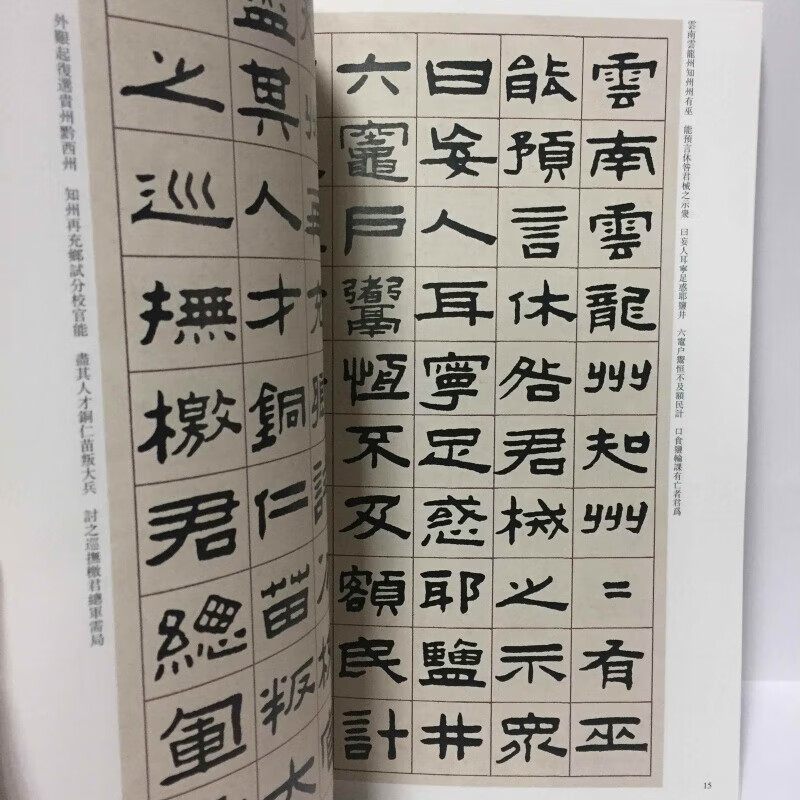 雲南雲龍州知州州有巫 能預言休咎君械之示衆 曰妄人耳寧足惑耶鹽井 六竈户鬻恒不及額民計 口食鹽輪課有亡者君爲
雲南雲龍州知州二有巫
能預言休咎君械之示衆
曰妄人耳寧足惑耶鹽井
六竈戶鬻恆不及額民計
15
盡其人才銅仁苗叛大
之巡撫檄君總軍
外艱起復選貴州黔西州 知州再充鄉試分校官能 盡其人才銅仁苗叛大兵 討之巡撫檄君總軍需局